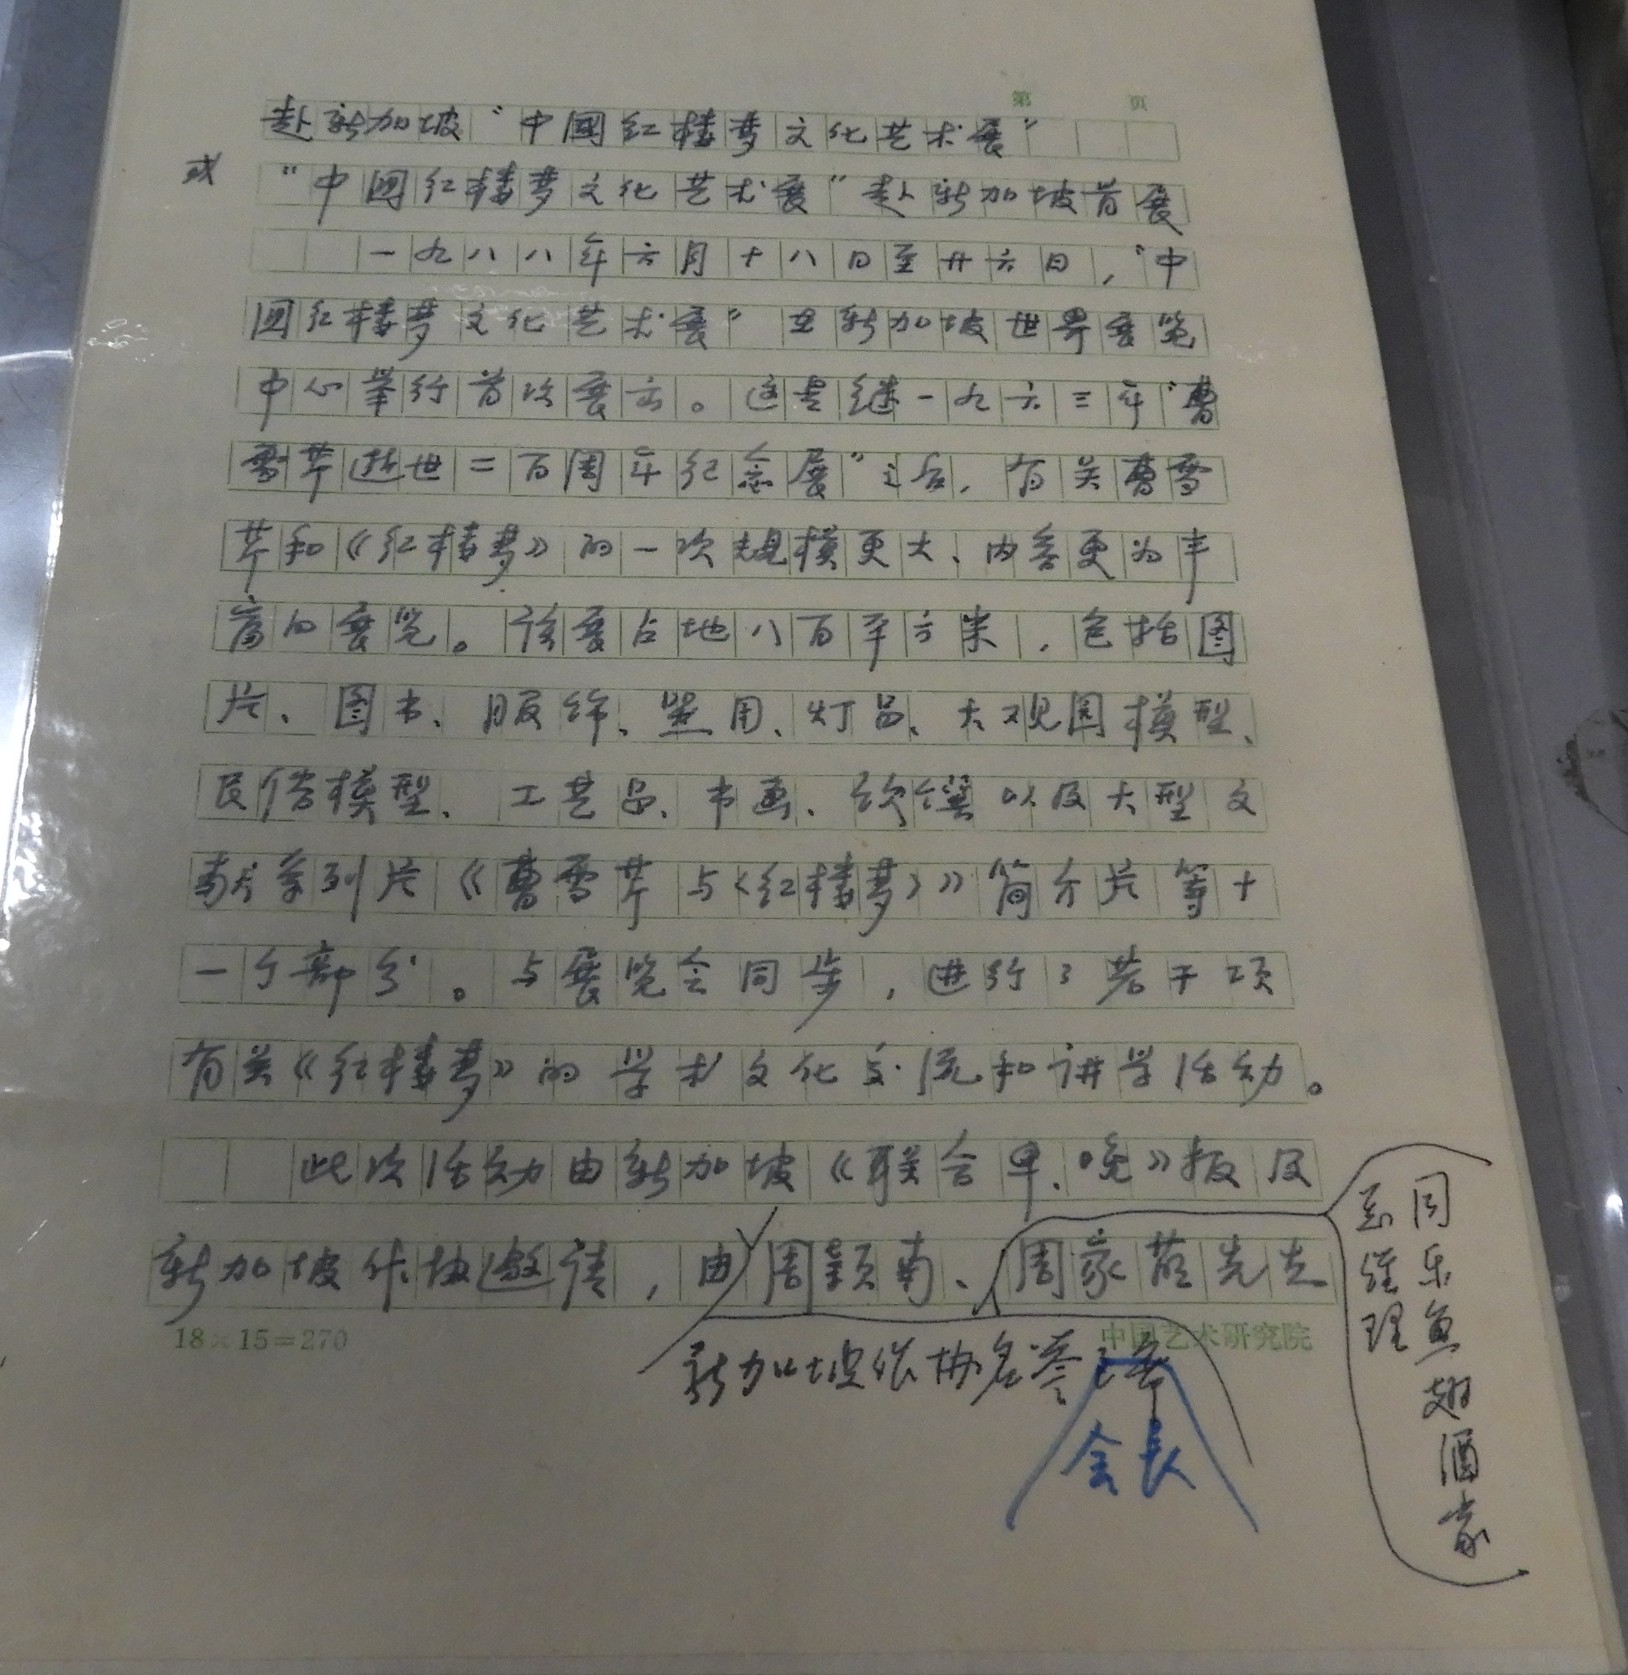 第 页
赴新加坡“中国红楼梦文化艺术展”
或 “中国红楼梦文化艺术展”赴新加坡首展
一九八八年六月十八日至廿六日，“中
国红楼梦文化艺术展”在新加坡世界展览
中心举行首次展出。这是继一九六三年“曹
雪芹逝世二百周年纪念展”之后，有关曹雪
芹和《红楼梦》的一次规模更大、内容更为丰
富的展览。该展占地八百平方米，包括图
片、图书、服饰、器用、灯品、大观园模型、
民俗模型、工艺品、书画、饮馔以及大型文
献系列片《曹雪芹与〈红楼梦〉》简介片等十
一个部分。与展览会同步，进行了若干项
有关《红楼梦》的学术文化交流和讲学活动。
此次活动由新加坡《联合早、晚》报及
新加坡作协邀请，由周颖南、周家萌先生
18×15=270
中国艺术研究院
新加坡作协名誉
会長
同乐鱼翅酒家
总经理